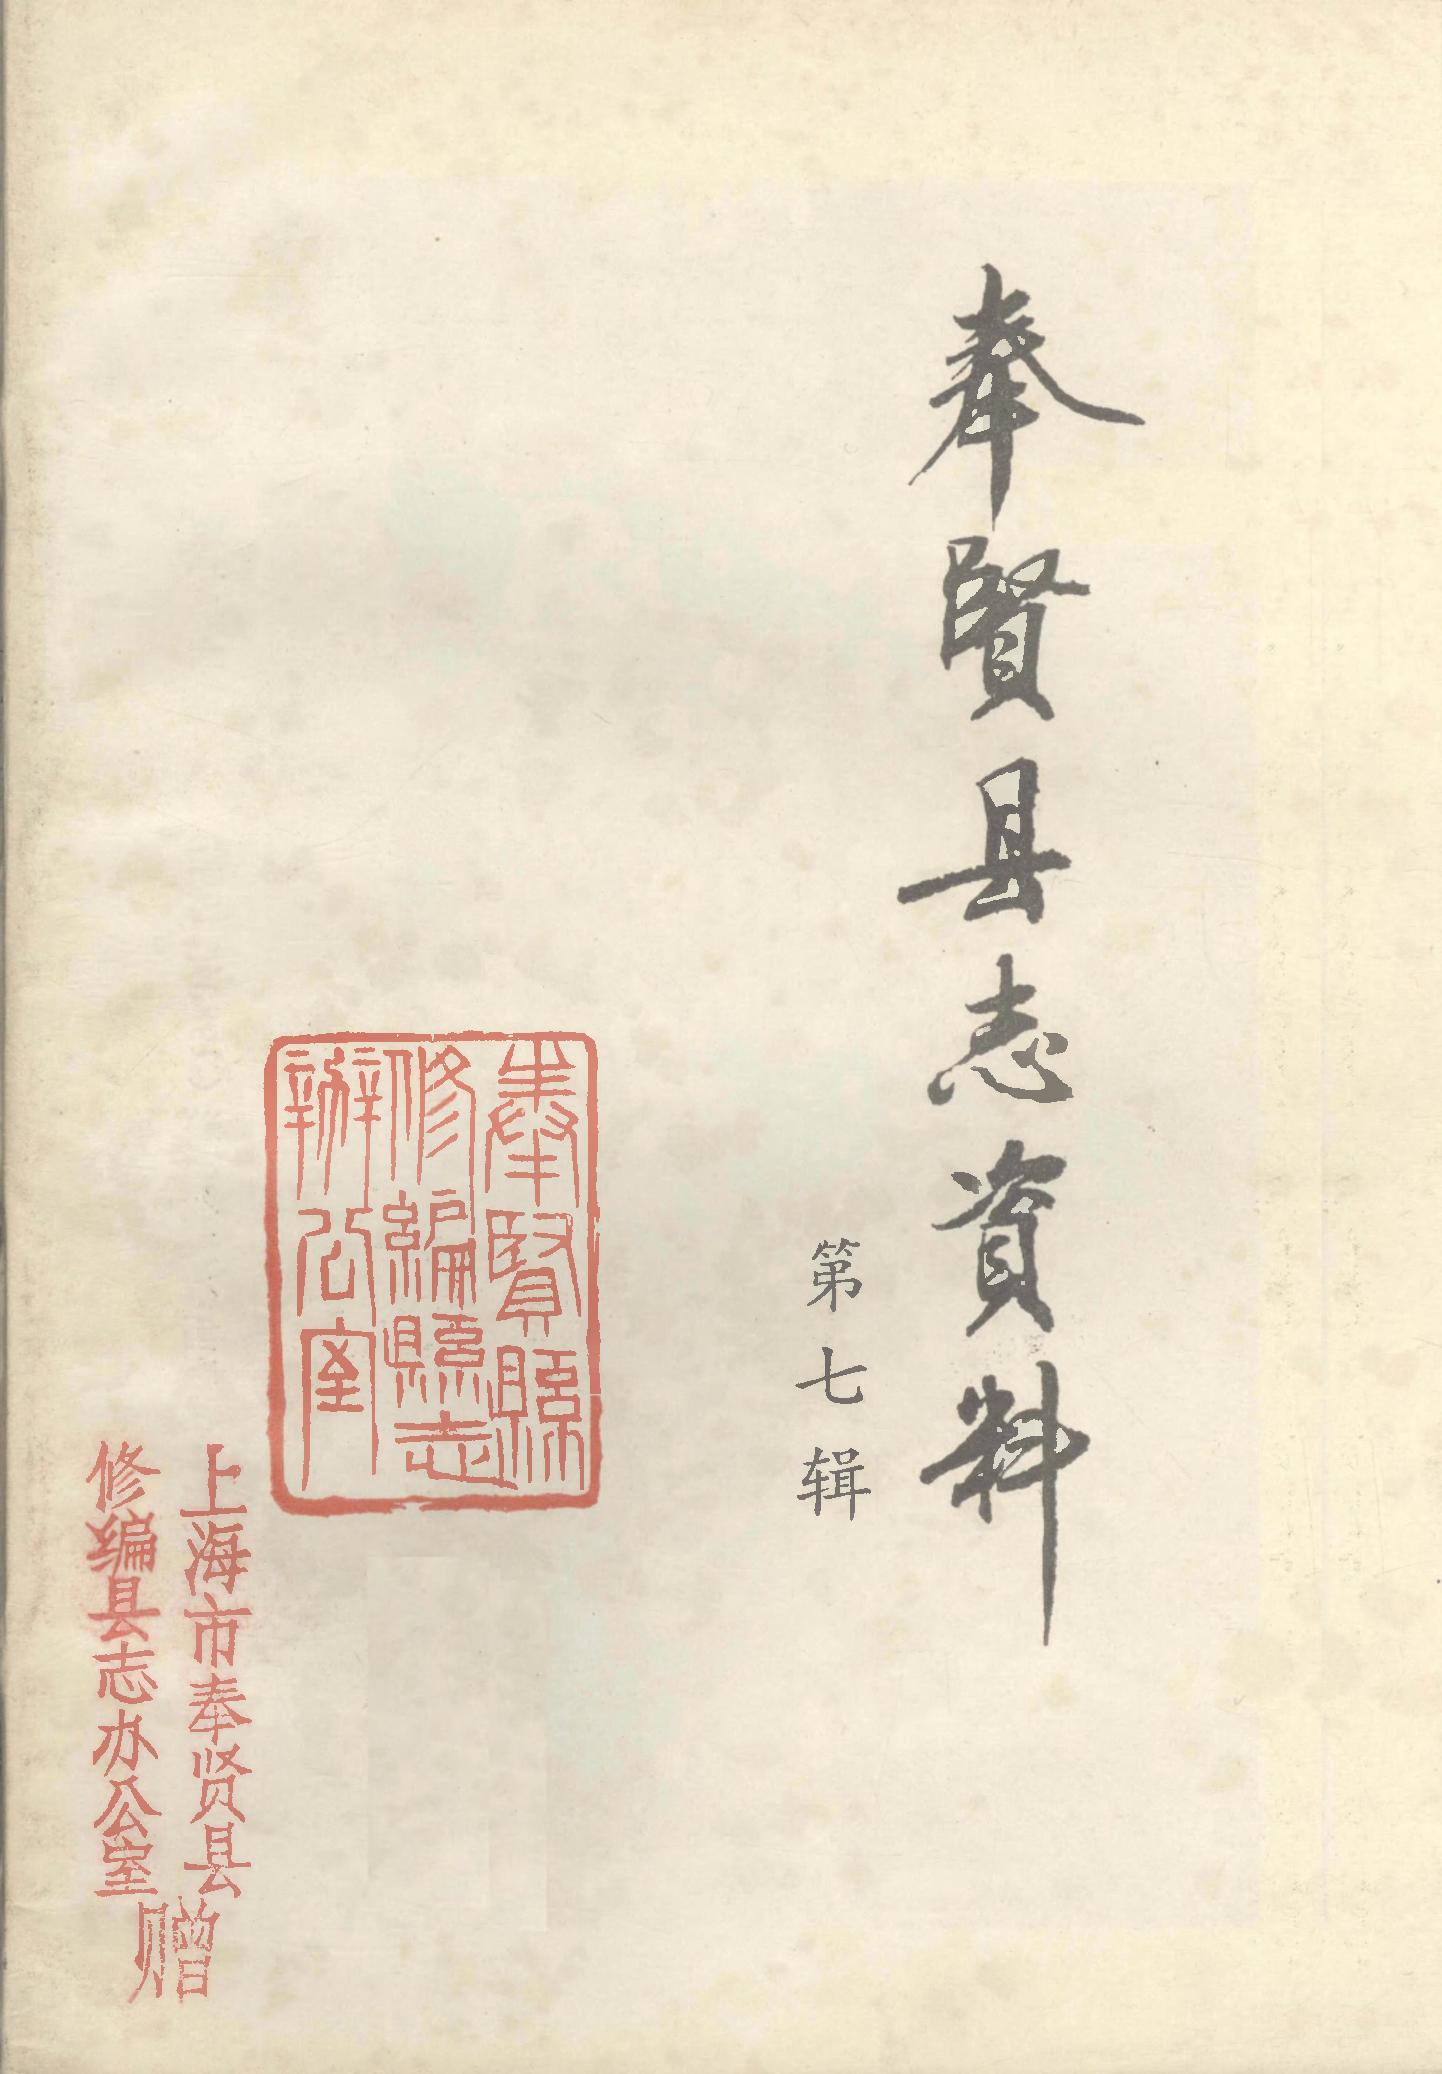 奉賢县志资料
第七辑
奉賢縣
修編縣志
辦公室
上海市奉贤县
修编县志办公室
赠